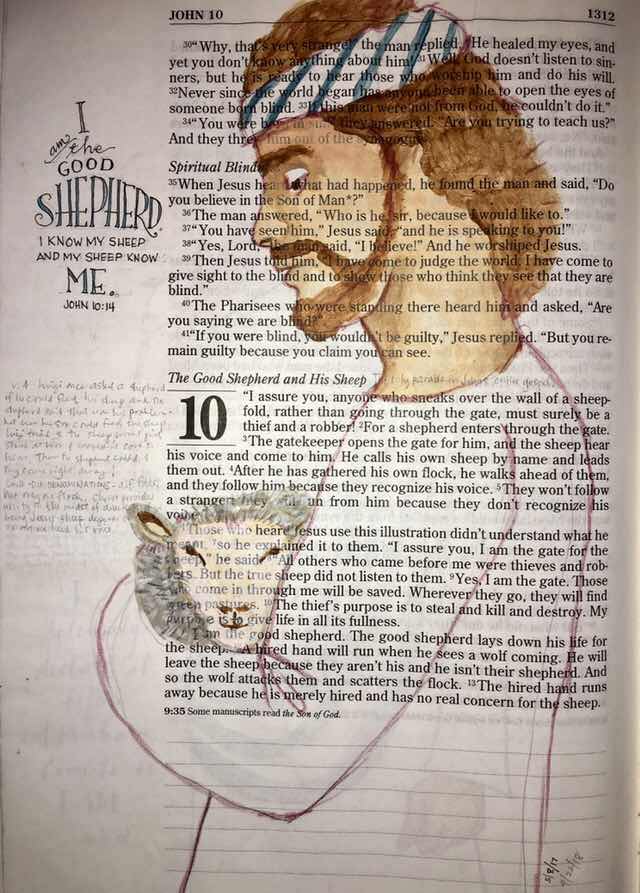 JOHN 10
1312
30“Why, that’s very strange!” the man replied. “He healed my eyes, and
yet you don’t know anything about him! 31Well, God doesn’t listen to sin-
ners, but he is ready to hear those who worship him and do his will.
32Never since the world began has anyone been able to open the eyes of
someone born blind. 33If this man were not from God, he couldn’t do it.”
34“You were born in sin!” they answered. “Are you trying to teach us?”
And they threw him out of the synagogue.
Spiritual Blind
35When Jesus heard what had happened, he found the man and said, “Do
you believe in the Son of Man*?”
36The man answered, “Who is he, sir, because I would like to.”
37“You have seen him,” Jesus said, “and he is speaking to you!”
38“Yes, Lord,” the man said, “I believe!” And he worshiped Jesus.
39Then Jesus told him, “I have come to judge the world. I have come to
give sight to the blind and to show those who think they see that they are
blind.”
40The Pharisees who were standing there heard him and asked, “Are
you saying we are blind?”
41“If you were blind, you wouldn’t be guilty,” Jesus replied. “But you re-
main guilty because you claim you can see.
The Good Shepherd and His Sheep
10 “I assure you, anyone who sneaks over the wall of a sheep-
fold, rather than going through the gate, must surely be a
thief and a robber! 2For a shepherd enters through the gate.
3The gatekeeper opens the gate for him, and the sheep hear
his voice and come to him. He calls his own sheep by name and leads
them out. 4After he has gathered his own flock, he walks ahead of them,
and they follow him because they recognize his voice. 5They won’t follow
a stranger; they will run from him because they don’t recognize his
voice.”
6Those who heard Jesus use this illustration didn’t understand what he
meant, 7so he explained it to them. “I assure you, I am the gate for the
sheep,” he said. 8“All others who came before me were thieves and rob-
bers. But the true sheep did not listen to them. 9Yes, I am the gate. Those
who come in through me will be saved. Wherever they go, they will find
green pastures. 10The thief’s purpose is to steal and kill and destroy. My
purpose is to give life in all its fullness.
I am the good shepherd. The good shepherd lays down his life for
the sheep. A hired hand will run when he sees a wolf coming. He will
leave the sheep because they aren’t his and he isn’t their shepherd. And
so the wolf attacks them and scatters the flock. 13The hired hand runs
away because he is merely hired and has no real concern for the sheep.
9:35 Some manuscripts read the Son of God.
I
am the
GOOD
SHEPHERD.
I KNOW MY SHEEP
AND MY SHEEP KNOW
ME.
JOHN 10:14
5/8/17